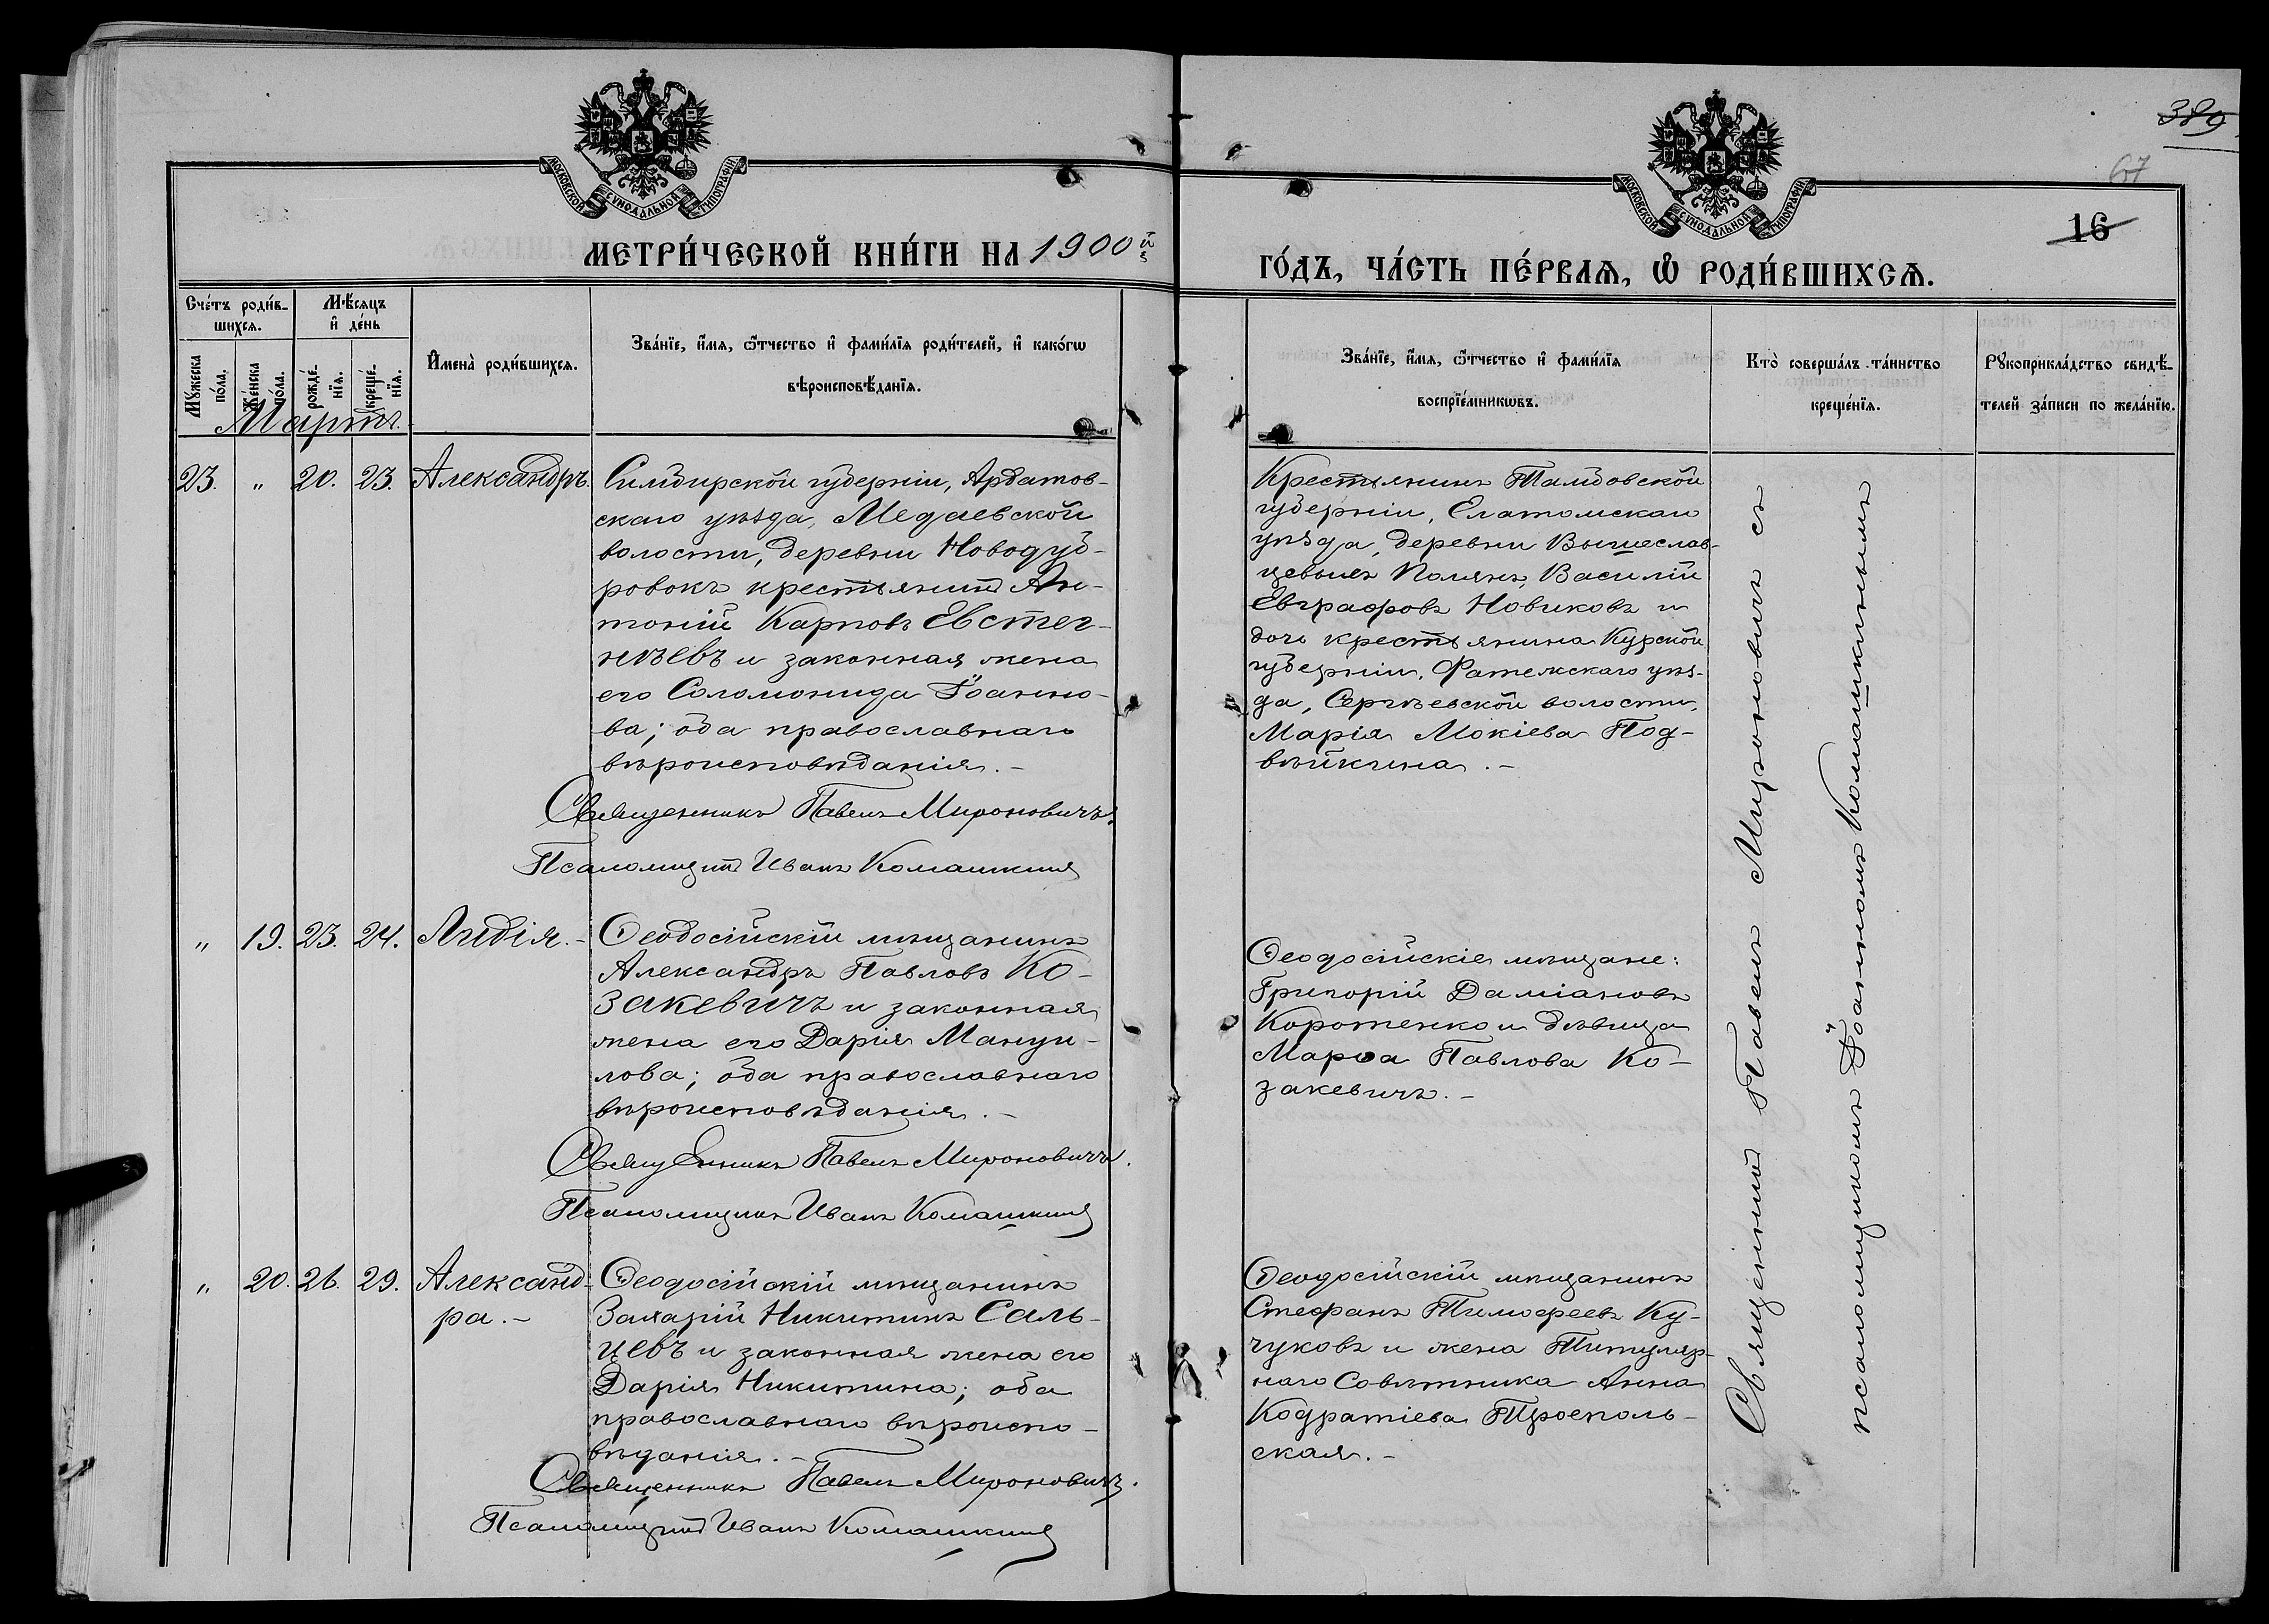 389
67
16
МОСКОВСКОЙ СѴНОДАЛЬНОЙ ТИПОГРАФІИ
МОСКОВСКОЙ СѴНОДАЛЬНОЙ ТИПОГРАФІИ
МЕТРИ́ЧЕСКОЙ КНИ́ГИ НА 1900й
ГО́ДЪ, ЧА́СТЬ ПЕ́РВАѦ, Ѡ҆ РОДИ́ВШИХСѦ.
Сче́тъ роди́в-
шихсѧ.
Мѣ́сѧцъ
и҆ де́нь
Мꙋ́жеска
по́ла.
Же́нска
по́ла.
рожде́-
нїѧ.
креще́-
нїѧ.
И҆мена̀ роди́вшихсѧ.
Зва́нїе, и҆́мѧ, ѻ҆́тчество и҆ фами́лїѧ роди́телей, и҆ како́гѡ
вѣроисповѣ́данїѧ.
Зва́нїе, и҆́мѧ, ѻ҆́тчество и҆ фами́лїѧ
воспрїе́мникѡвъ.
Кто̀ соверша́лъ та́инство
креще́нїѧ.
Рꙋкоприкла́дство свидѣ́-
телей за́писи по жела́нїю.
Мартъ.
23. " 20. 23. Александръ.
Симбирской губерніи, Ардатов-
скаго уѣзда, Медаевской
волости, деревни Новодуб-
ровокъ крестьянинъ Ан-
тоній Карповъ Евстег-
нѣевъ и законная жена
его Соломонида Іоанно-
ва; оба православнаго
вѣроисповѣданія.-
Священникъ Павелъ Мироновичъ.
Псаломщикъ Иванъ Комашкинъ
Крестьянинъ Тамбовской
губерніи, Елатомскаго
уѣзда, деревни Вышеслав-
цевыхъ Полянъ, Василій
Евграфовъ Новиковъ и
дочь крестьянина Курской
губерніи, Фатежскаго уѣз-
да, Сергѣевской волости,
Марія Мокіева Под-
вѣйкина.-
" 19. 23. 24. Лидія.-
Ѳеодосійскій мѣщанинъ
Александръ Павловъ Ко-
закевичъ и законная
жена его Дарія Мануи-
лова; оба православнаго
вѣроисповѣданія.-
Священникъ Павелъ Мироновичъ.
Псаломщикъ Иванъ Комашкинъ
Ѳеодосійскіе мѣщане:
Григорій Даміановъ
Коротенко и дѣвица
Марѳа Павлова Ко-
закевичъ.-
" 20. 26. 29. Александ-
ра.-
Ѳеодосійскій мѣщанинъ
Захарій Никитинъ Саль-
цевъ и законная жена его
Дарія Никитина; оба
православнаго вѣроиспо-
вѣданія.-
Священникъ Павелъ Мироновичъ.
Псаломщикъ Иванъ Комашкинъ
Ѳеодосійскій мѣщанинъ
Стефанъ Тимофеевъ Ку-
чуковъ и жена Титуляр-
наго Совѣтника Анна
Кодратіева Троеполь-
ская.-
Священникъ Павелъ Мироновичъ съ
псаломщикомъ Іоанномъ Комашкинымъ